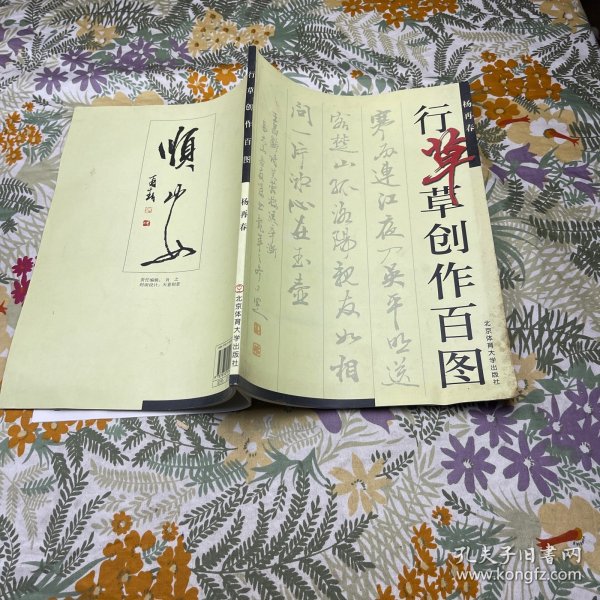 杨再春
行草创作百图
北京体育大学出版社
寒雨連江夜入吴平明送
客楚山孤洛陽親友如相
问一片冰心在玉壶
王昌齡诗芙蓉楼送辛渐
行草创作百图
杨再春
北京体育大学出版社
順
再春
责任编辑：
封面设计：
孔夫子旧书网
www.kongfz.com